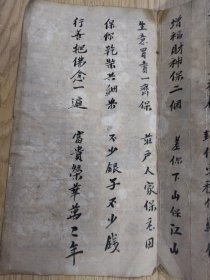 增福財神保二個　差你下山保江山
生意買賣一齊保　莊戶人家保意因
保你乾柴共細米　不少銀子不少錢
行善把佛念一遍　富貴榮華萬ミ年